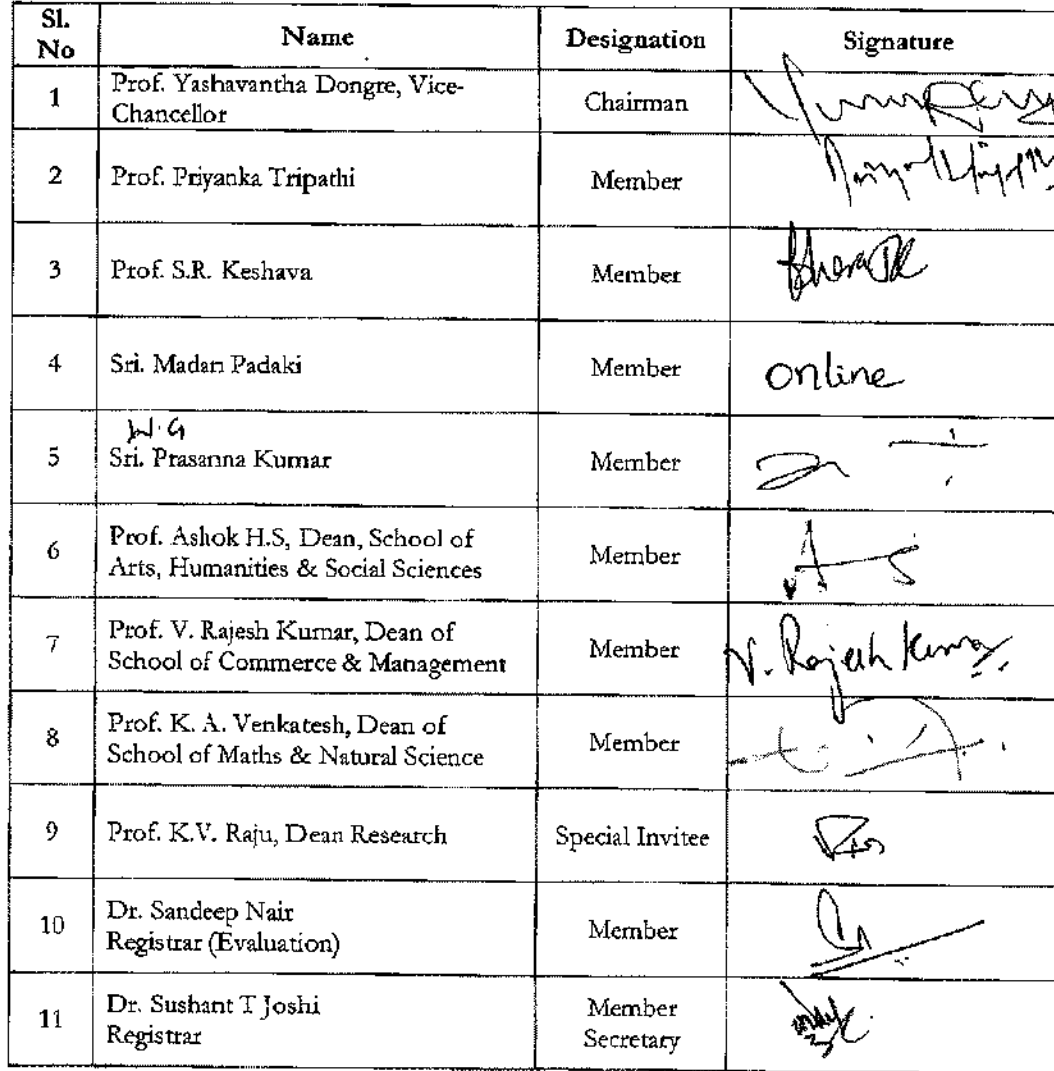 Sl. No Name Designation Signature
1 Prof. Yashavantha Dongre, Vice-
Chancellor Chairman
2 Prof. Priyanka Tripathi Member
3 Prof. S.R. Keshava Member
4 Sri. Madan Padaki Member online
W.G
5 Sri. Prasanna Kumar Member
6 Prof. Ashok H.S, Dean, School of
Arts, Humanities & Social Sciences Member
7 Prof. V. Rajesh Kumar, Dean of
School of Commerce & Management Member V. Rajesh Kumar
8 Prof. K. A. Venkatesh, Dean of
School of Maths & Natural Science Member
9 Prof. K.V. Raju, Dean Research Special Invitee
10 Dr. Sandeep Nair
Registrar (Evaluation) Member
11 Dr. Sushant T Joshi Member
Registrar Secretary